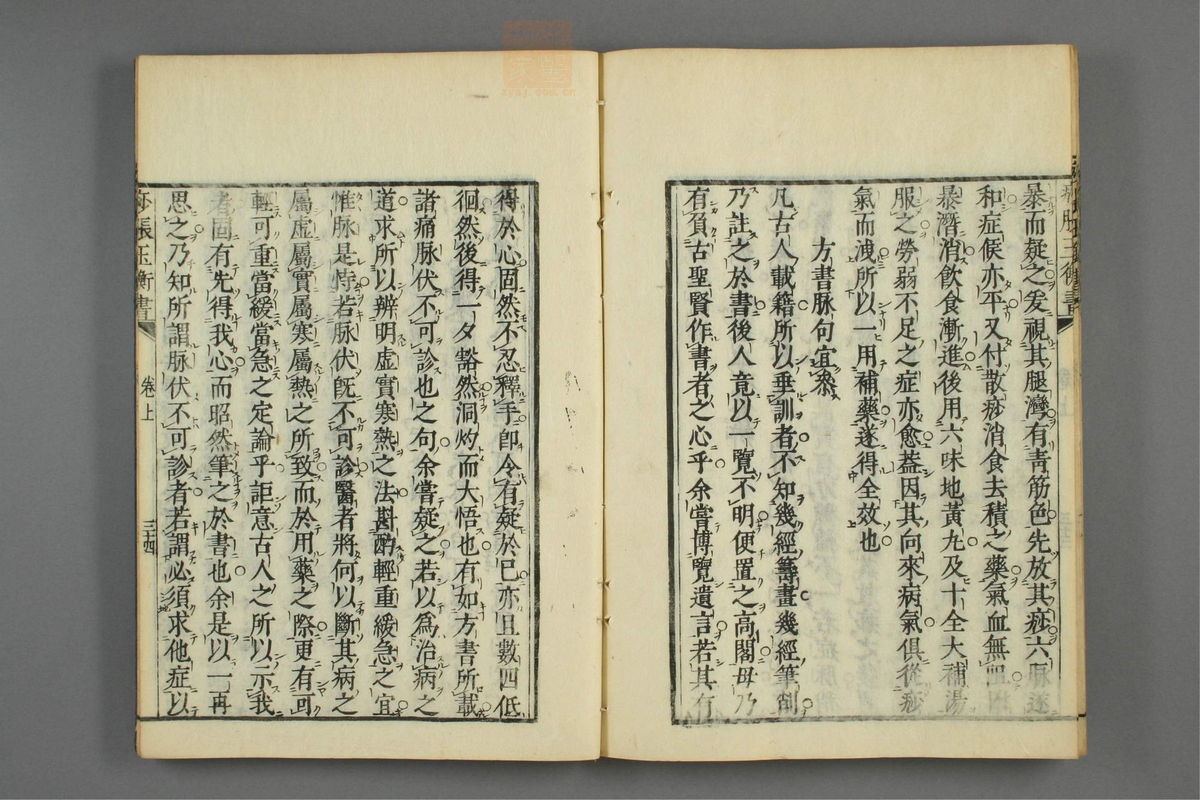 暴而疑之爰視其腿灣有青筋色先放其痧六脉遂
和症候亦平又付散痧消食去積之藥氣血無阻
暴潛消飲食漸進後用六味地黃九及十全大補湯
服之勞弱不足之症亦愈葢因其向來病氣俱從痧
氣而洩所以一用補藥遂得全效也
方書脉句宜叅
凡古人載籍所以垂訓者不知幾經籌畫幾經筆削
乃註之於書後人竟以一覽不明便置之高閣毋乃
有負古聖賢作書者之心乎余嘗博覽遺言若其有
得於心固然不忍釋手卽令有疑於巳亦且數四低
徊然後得一夕豁然洞灼而大悟也有如方書所載
諸痛脉伏不可診也之句余嘗疑之若以爲治病之
道求所以辨明虛實寒熱之法斟酌輕重緩急之宜
惟脉是恃若脉伏旣不可診醫者將何以斷其病之
屬虛屬實屬寒屬熱之所致而於用藥之際更有可
輕可重當緩當急之定論乎詎意古人之所以示我
者固有先得我心而昭然筆之於書也余是以一再
思之乃知所謂脉伏不可診者若謂必須求他症以
痧脹玉衡書
卷上
三十四